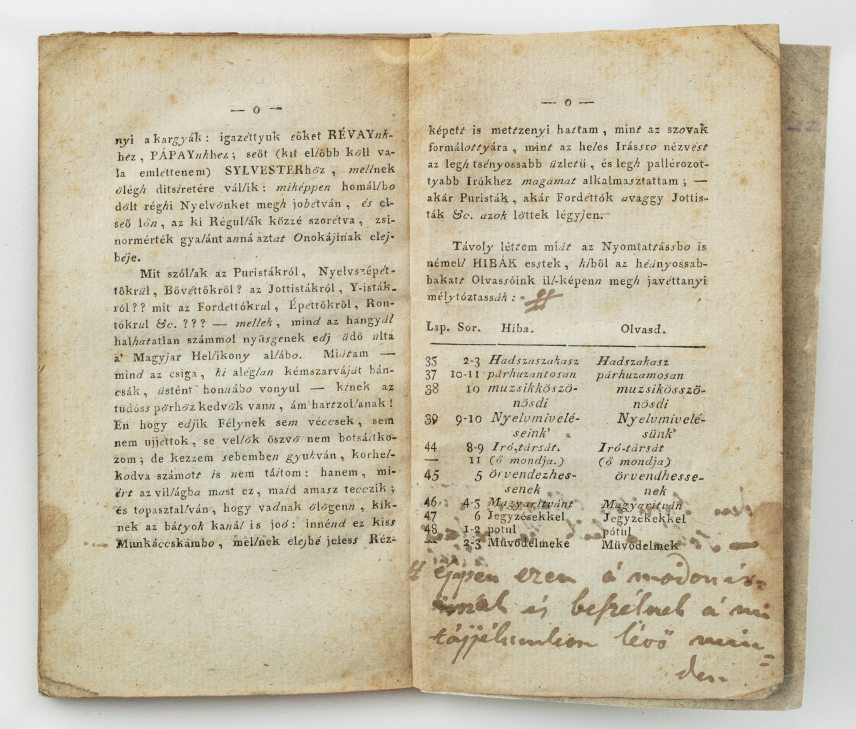 — o —
nyi a kargyák: igazettyuk eőket RÉVAYnk-
héz, PÁPAYnkhez; seőt (kit előbb köll va-
la emlettenem) SYLVESTERhöz, mellnek
ölégh ditsiretére válik: miképpen homálbo
dőlt réghi Nyelvönket megh jobetván, és el-
seő lön, az ki Régulák közzé szoretva, zsi-
normérték gyalánt anná aztat Onokájinak elej-
béje.
Mit szóllak az Puristákról, Nyelvszépét-
tőkrül, Bövéttőkről? az Jottistákról, Y-isták-
ról?? mit az Fordéttőkrul, Épéttőkről, Ron-
tókrul &c. ??? — mellek, mind az hangyál
halhatatlan számmol nyüsgenek edj üdő ulta
a' Magyjar Helikony allábo. Miátam —
mind az csiga, ki aléglan kémszarváját bán-
csák, üstént honnábo vonyul — kinek az
tudóss pörhöz kedvök vann, ám hartzollanak!
Én hogy edjik Félynek sem véccsek, sem
nem ujjettok, se vellök öszvö nem botsáitko-
zom; de kezzem sebemben gyutván, korhel-
kodva számott is nem táitom: hanem, mi-
ért az világba mast ez, maid amasz tecczik;
és topasztalván, hogy vadnak ölögenn, kik-
nek az bátyok kanál is joó: innénd ez kiss
Munkáccskámbo, mellnek elejbé jeless Réz-
— o —
képett is mettzenyi hattam, mint az szovak
formálottyára, mint az heles Irássro nézvést
az legh tsényossabb üzletű, és legh pallérozot-
tyabb Irókhez magamat alkalmasztattam; —
akár Puristák, akár Fordéttók avaggy Jottis-
ták &c. azok löttek légyjen.
Távoly léttem miát az Nyomtattássbo is
némell HIBÁK esstek, kiből az heányossab-
bakatt Olvassóink ill-képenn megh javéttanyi
mélytóztassák:
Lap. Sor. Hiba. Olvasd.
35 2-3 Hadszaszakasz Hadszakasz
37 10-11 párhuzantosan párhuzamosan
38 10 muzsikköszö- muzsikösszö-
nösdi nösdi
39 9-10 Nyelvmivelé- Nyelvmivelé-
seink' sünk'
44 8-9 Iró,társát. Iró-társát
— 11 (ő mondja.) (ő mondja)
45 5 örvendezhes- örvendhesse-
senek nek
46 4-5 Magyaritvánt Magyaritván
47 6 Jegyzésekkel Jegyzékekkel
48 1-2 potul pótul
— 2-3 Művödelmeke Művödelmek
éppen ezen á módon ir-
nak és beszélnek á mi
tájjékunkon lévő min-
den